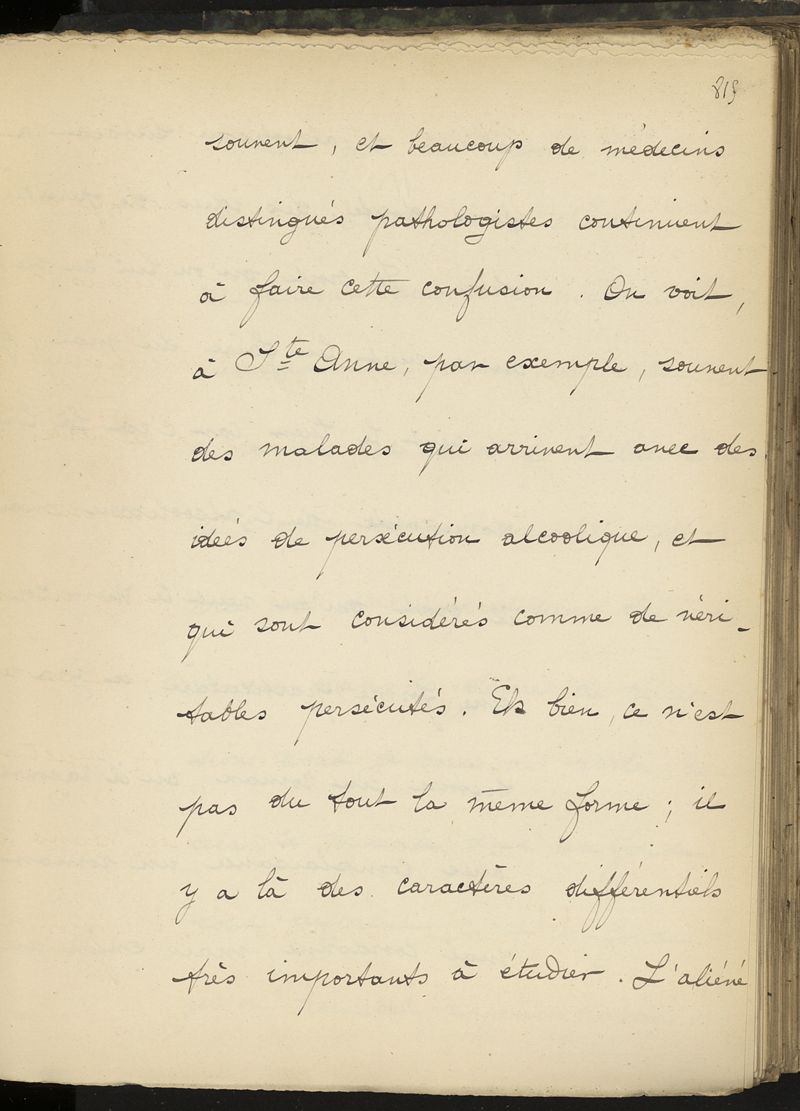 819
souvent, et beaucoup de médecins
distingués pathologistes continuent
à faire cette confusion. On voit,
à Ste Anne, par exemple, souvent
des malades qui arrivent avec des
idées de persécution alcoolique, et
qui sont considérés comme de véri-
tables persécutés. Eh bien, ce n'est
pas du tout la même forme ; il
y a là des caractères différentiels
très importants à étudier. L'aliéné